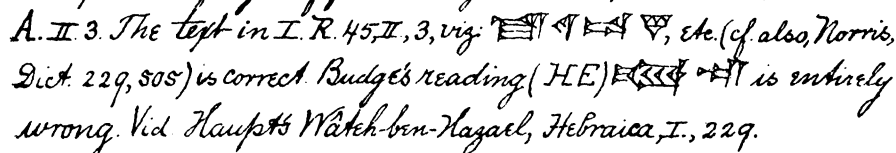 A. II. 3. The text in I. R. 45, II, 3, viz: etc. (cf. also, Norris,
Dict. 229, 505) is correct. Budge's reading (HE) is entirely
wrong. Vid. Haupt's Wâteh-ben-Hazael, Hebraica, I., 229.